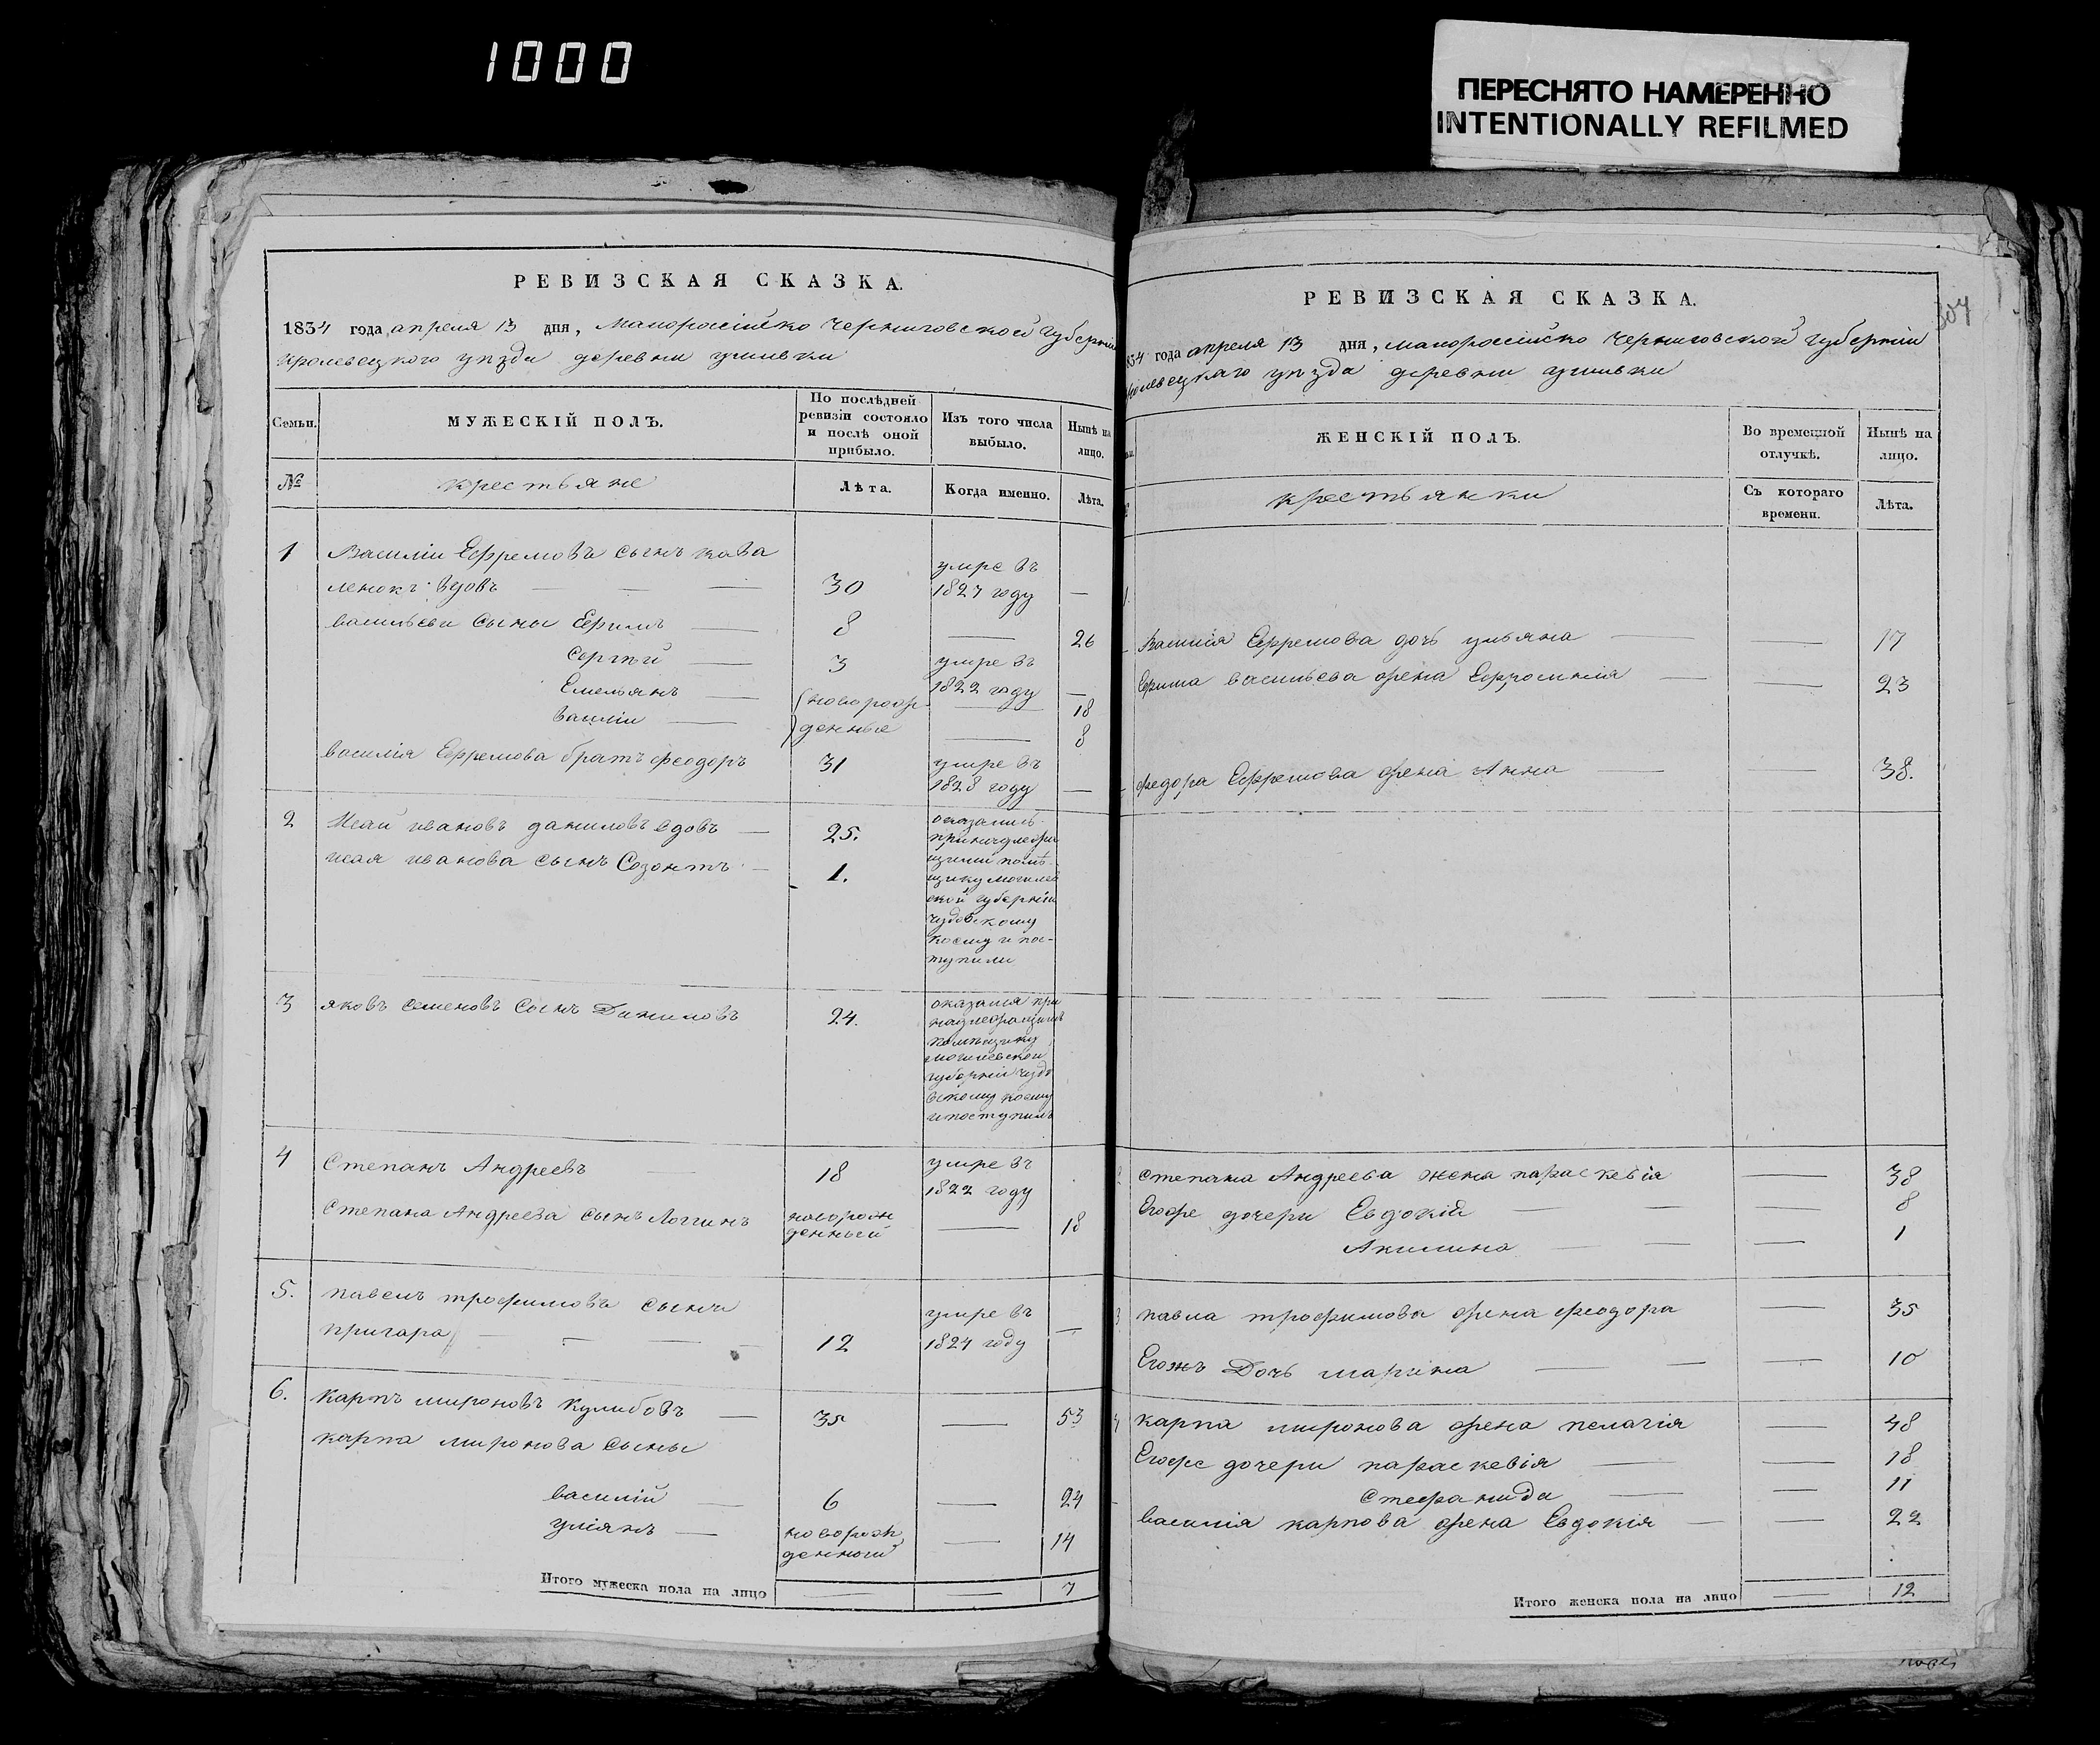 1000
ПЕРЕСНЯТО НАМЕРЕННО
INTENTIONALLY REFILMED
РЕВИЗСКАЯ СКАЗКА.
1834 года апреля 13 дня, малоросійско Черниговской губерніи
кролевецкого уѣзда деревни
Семьи.
МУЖЕСКІЙ ПОЛЪ.
По послѣдней
ревизіи состояло
и послѣ оной
прибыло.
Изъ того числа
выбыло.
Нынѣ на
лицо.
№
крестьяне
Лѣта.
Когда именно.
Лѣта.
1
Василіи Ефремовъ сынъ кова
ленокъ вдовъ
30
умре въ
1827 году
васильеви сыны Ефимъ
8
26
Сергѣй
3
умре въ
1822 году
Емельянъ
новорож
18
Василіи
денные
8
василія Ефремова братъ феодоръ
31
умре въ
1828 году
2
Исай ивановъ даниловъ вдовъ
25.
исая иванова сынъ Созонтъ
1.
оказались
принадлежа
щими помѣ
щику могилев
ской губерніи
коему и пос-
тупили
3
яковъ семеновъ сынъ Даниловъ
24.
оказался при
надлежащимъ
помѣщику
могилевской
губерніи
коему
и поступилъ
4
Степанъ Андреевъ
18
умре въ
1822 году
Степана Андреева сынъ Логгинъ
новорож
денный
18
5.
павелъ трофимовъ сынъ
пригара
12
умре въ
1824 году
6.
Карпъ мироновъ Кулибовъ
35
53
карпа миронова сыны
василій
6
24
уліянъ
новорож
денной
14
Итого мужеска пола на лицо
7
307
РЕВИЗСКАЯ СКАЗКА.
834 года апреля 13 дня, малоросійско Черниговской губерніи
ролевецкаго уѣзда деревни
ЖЕНСКІЙ ПОЛЪ.
Во временной
отлучкѣ.
Нынѣ на
лицо.
крестьянки
Съ котораго
времени.
Лѣта.
1.
Василія Ефремова дочь ульяна
17
Ефима васильева жена Ефросинія
23
федора Ефремова жена Анна
38.
2
степана Андреева жена параскевія
38
Егоже дочери Евдокій
8
Акилина
1
3
павла трофимова жена феодора
35
Егожъ Дочь марина
10
4
карпа миронова жена пелагія
48
Егоже дочери параскевія
18
стефанида
11
василія карпова жена Евдокія
22
Итого женска пола на лицо
12